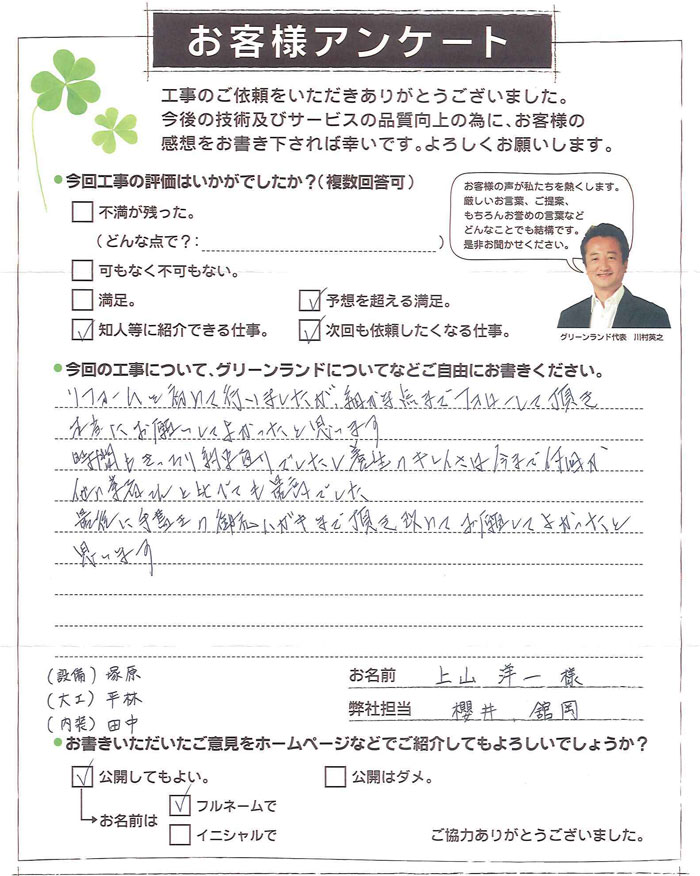 お客様アンケート
工事のご依頼をいただきありがとうございました。
今後の技術及びサービスの品質向上の為に、お客様の
感想をお書き下されば幸いです。よろしくお願いします。
今回工事の評価はいかがでしたか?(複数回答可)
お客様の声が私たちを熱くします。
厳しいお言葉、ご提案、
もちろんお誉めの言葉など
どんなことでも結構です。
是非お聞かせください。
グリーンランド代表 川村英之
不満が残った。
(どんな点で?: )
可もなく不可もない。
満足。
予想を超える満足。
知人等に紹介できる仕事。
次回も依頼したくなる仕事。
今回の工事について、グリーンランドについてなどご自由にお書きください。
リフォームを初めて行いましたが、細かな点までフォローして頂き
本当にお願いしてよかったと思います
時間もきっちり約束通りでしたし養生のキレイさは今まで
他の業者さんと比べても最高でした
最後に のハガキまで頂き お願してよかったと
思います
(設備) 塚原
(大工) 平林
(内装) 田中
お名前 上山 洋一 様
弊社担当 櫻井 舘岡
お書きいただいたご意見をホームページなどでご紹介してもよろしいでしょうか?
公開してもよい。
公開はダメ。
お名前は
フルネームで
イニシャルで
ご協力ありがとうございました。